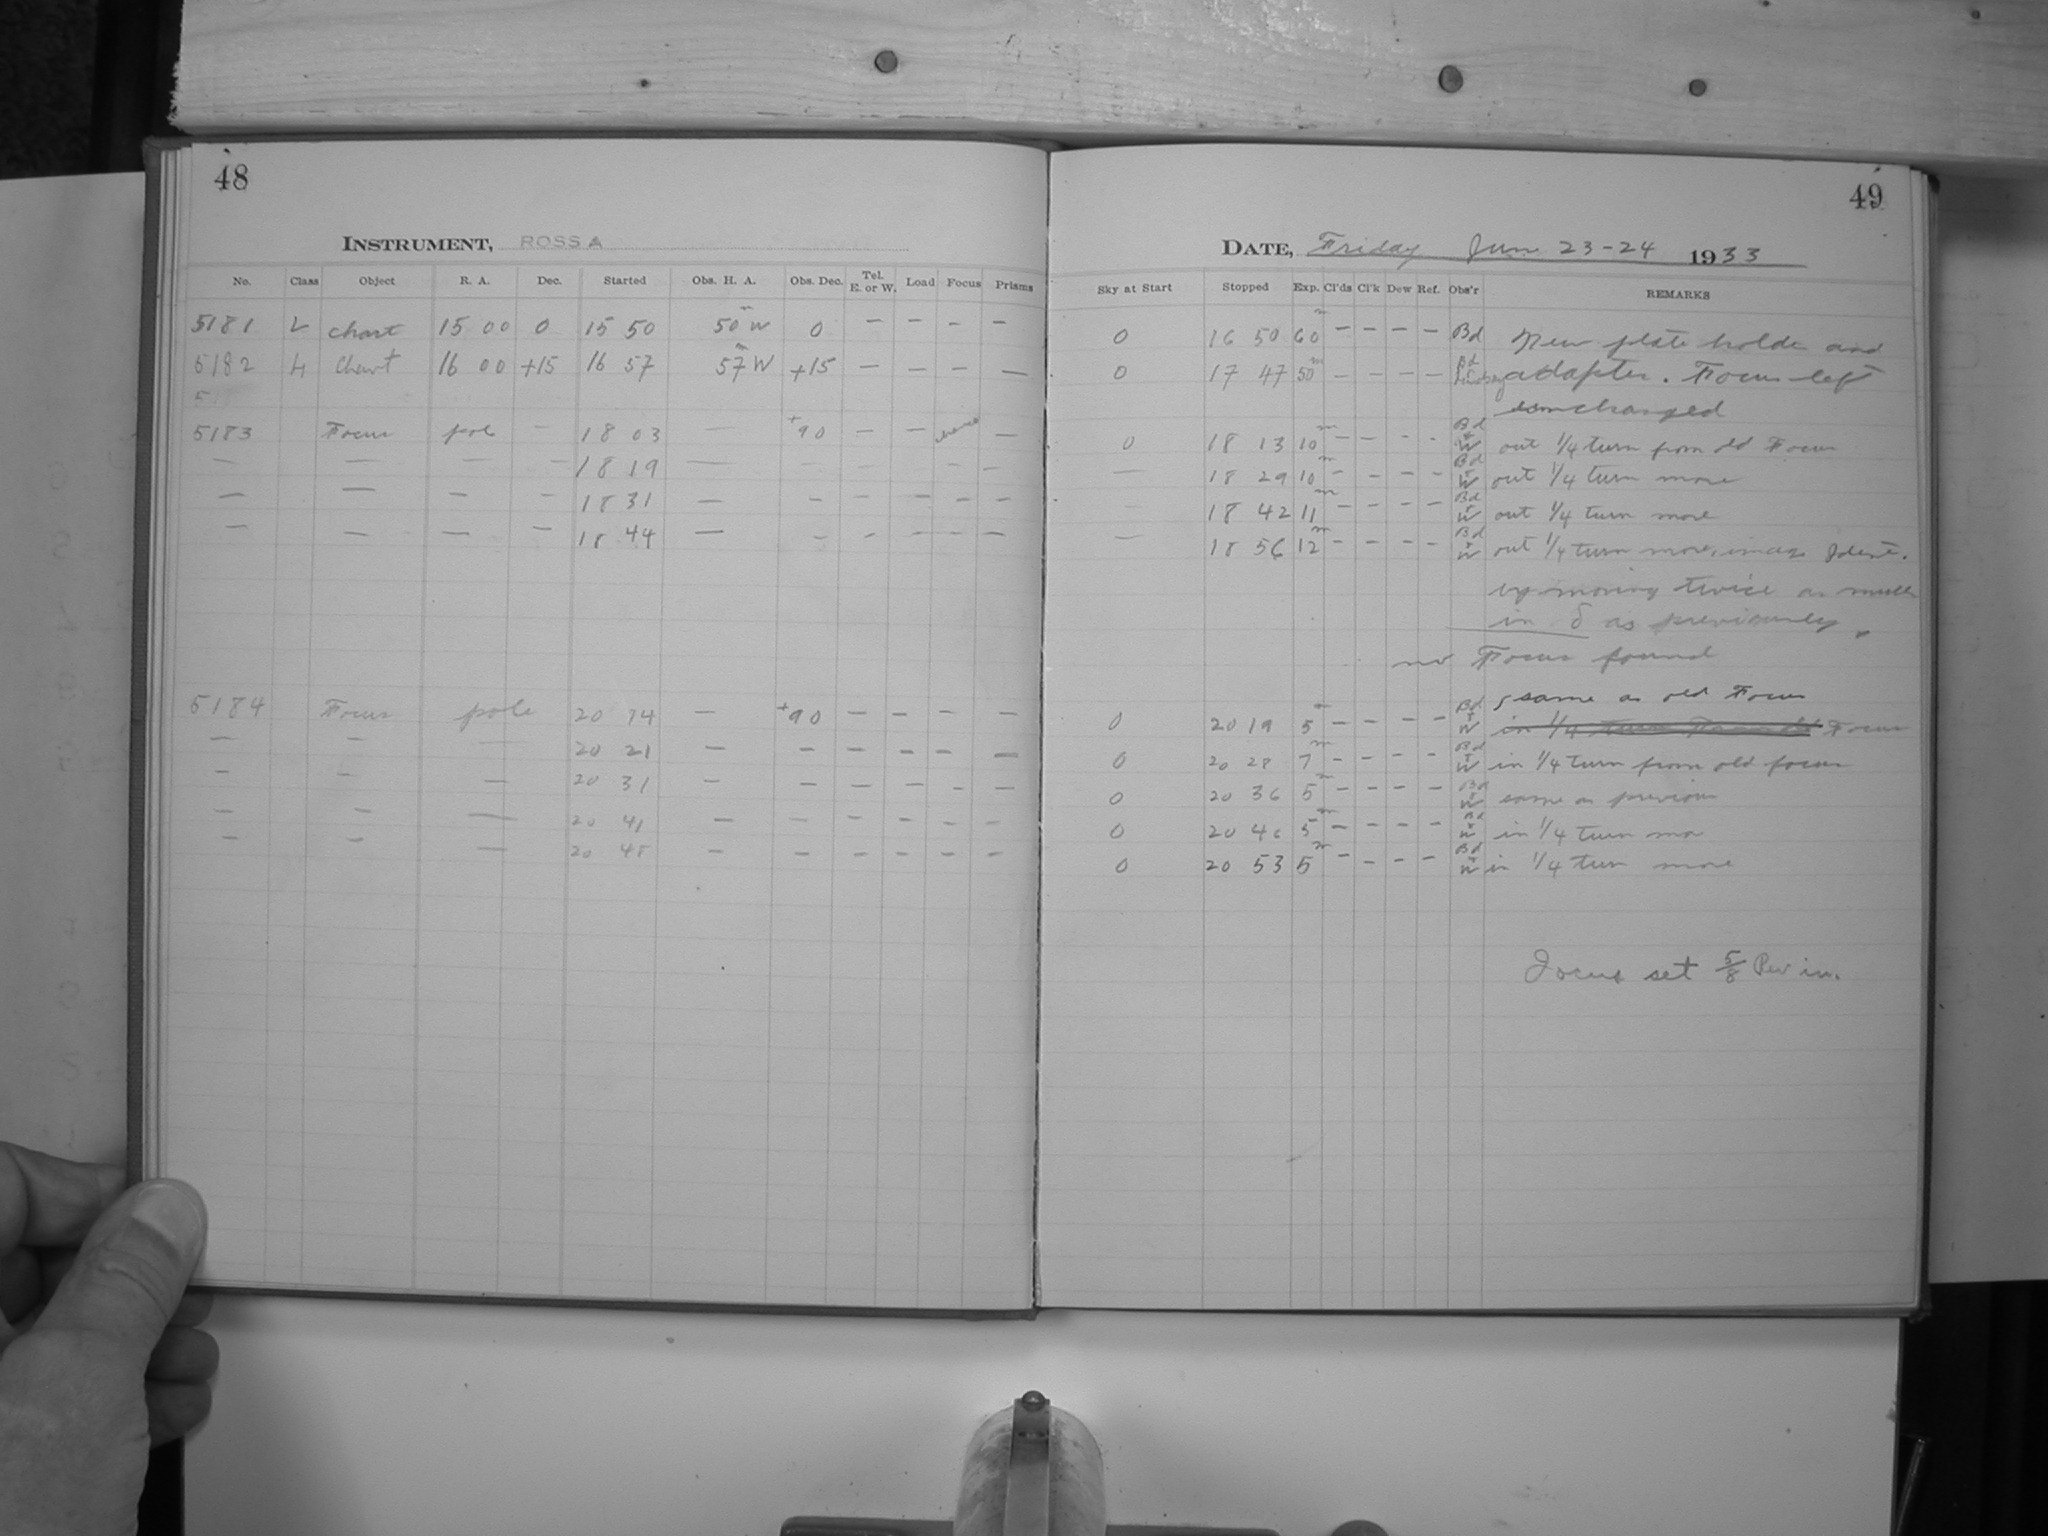 48
INSTRUMENT, ROSS A
No. Class Object R. A. Dec. Started Obs. H. A. Obs. Dec. Tel. E. or W. Load Focus Prisms
5181 L chart 15 00 0 15 50 50m W 0 — — — —
5182 L Chart 16 00 +15 16 57 57m W +15 — — — —
5
5183 Focus pole — 18 03 — +90 — — —
— — — — 18 19 —
— — — — 18 31 — — — — — —
— — — — 18 44 — — — — — —
5184 Focus pole 20 14 — +90 — — — —
— — — 20 21 — — — — — —
— — — 20 31 — — — — — —
— — — 20 41 — — — — — —
— — — 20 48 — — — — — —
49
DATE, Friday June 23-24 1933
Sky at Start Stopped Exp. Cl'ds Cl'k Dew Ref. Obs'r REMARKS
0 16 50 60m — — — — Bd New plate holder and
0 17 47 50m — — — — Bd Lindsay adapter. Focus left
unchanged
0 18 13 10m — — — — Bd + W out 1/4 turn from old Focus
— 18 29 10m — — — — Bd + W out 1/4 turn more
— 18 42 11m — — — — Bd + W out 1/4 turn more
— 18 56 12m — — — — Bd + W out 1/4 turn more, image Ident.
by moving twice as much
in δ as previously.
no Focus found
same as old Focus
0 20 19 5m — — — — Bd + W in 1/4 turn From old Focus
0 20 28 7m — — — — Bd + W in 1/4 turn from old focus
0 20 36 5m — — — — Bd + W same as previous
0 20 46 5m — — — — Bd + W in 1/4 turn more
0 20 53 5m — — — — Bd + W in 1/4 turn more
Focus set 5/8 Rev in.